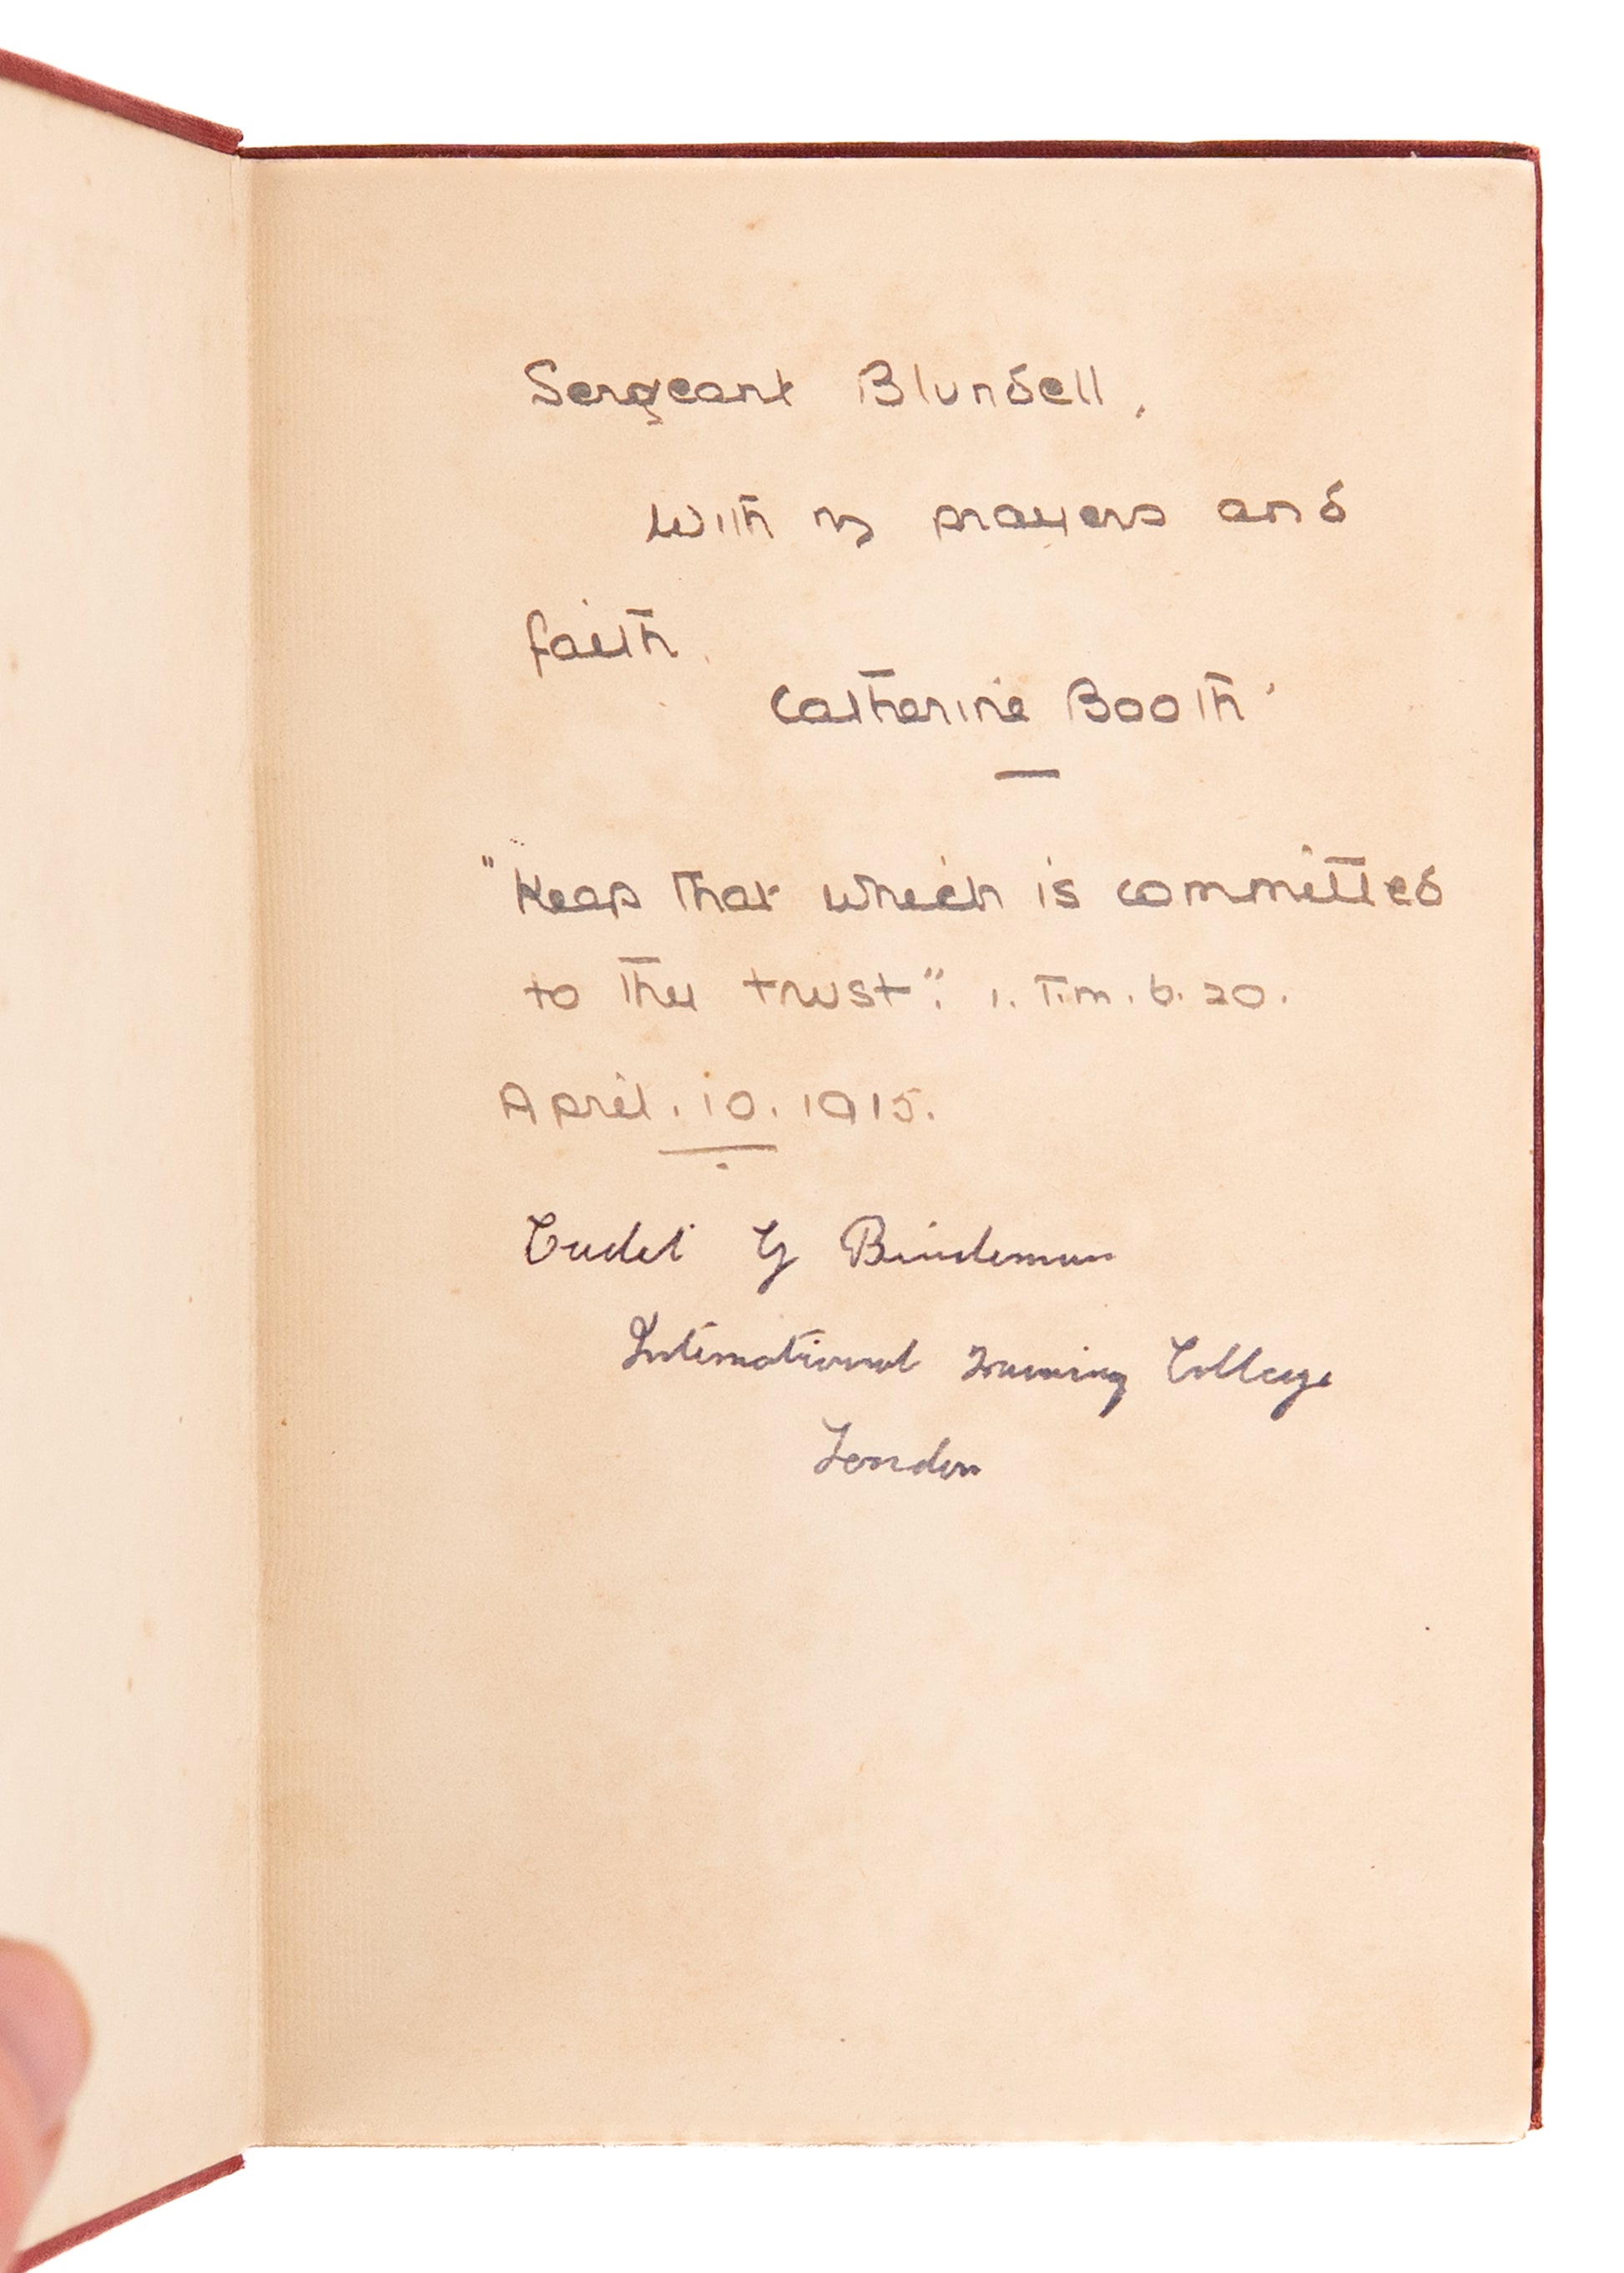 Sergeant Blundell,
With my prayers and
faith.
Catherine Booth
"Keep that which is committed
to thy trust". 1. Tim. 6. 20.
April. 10. 1915.
Cadet G Bindeman
International Training College
London